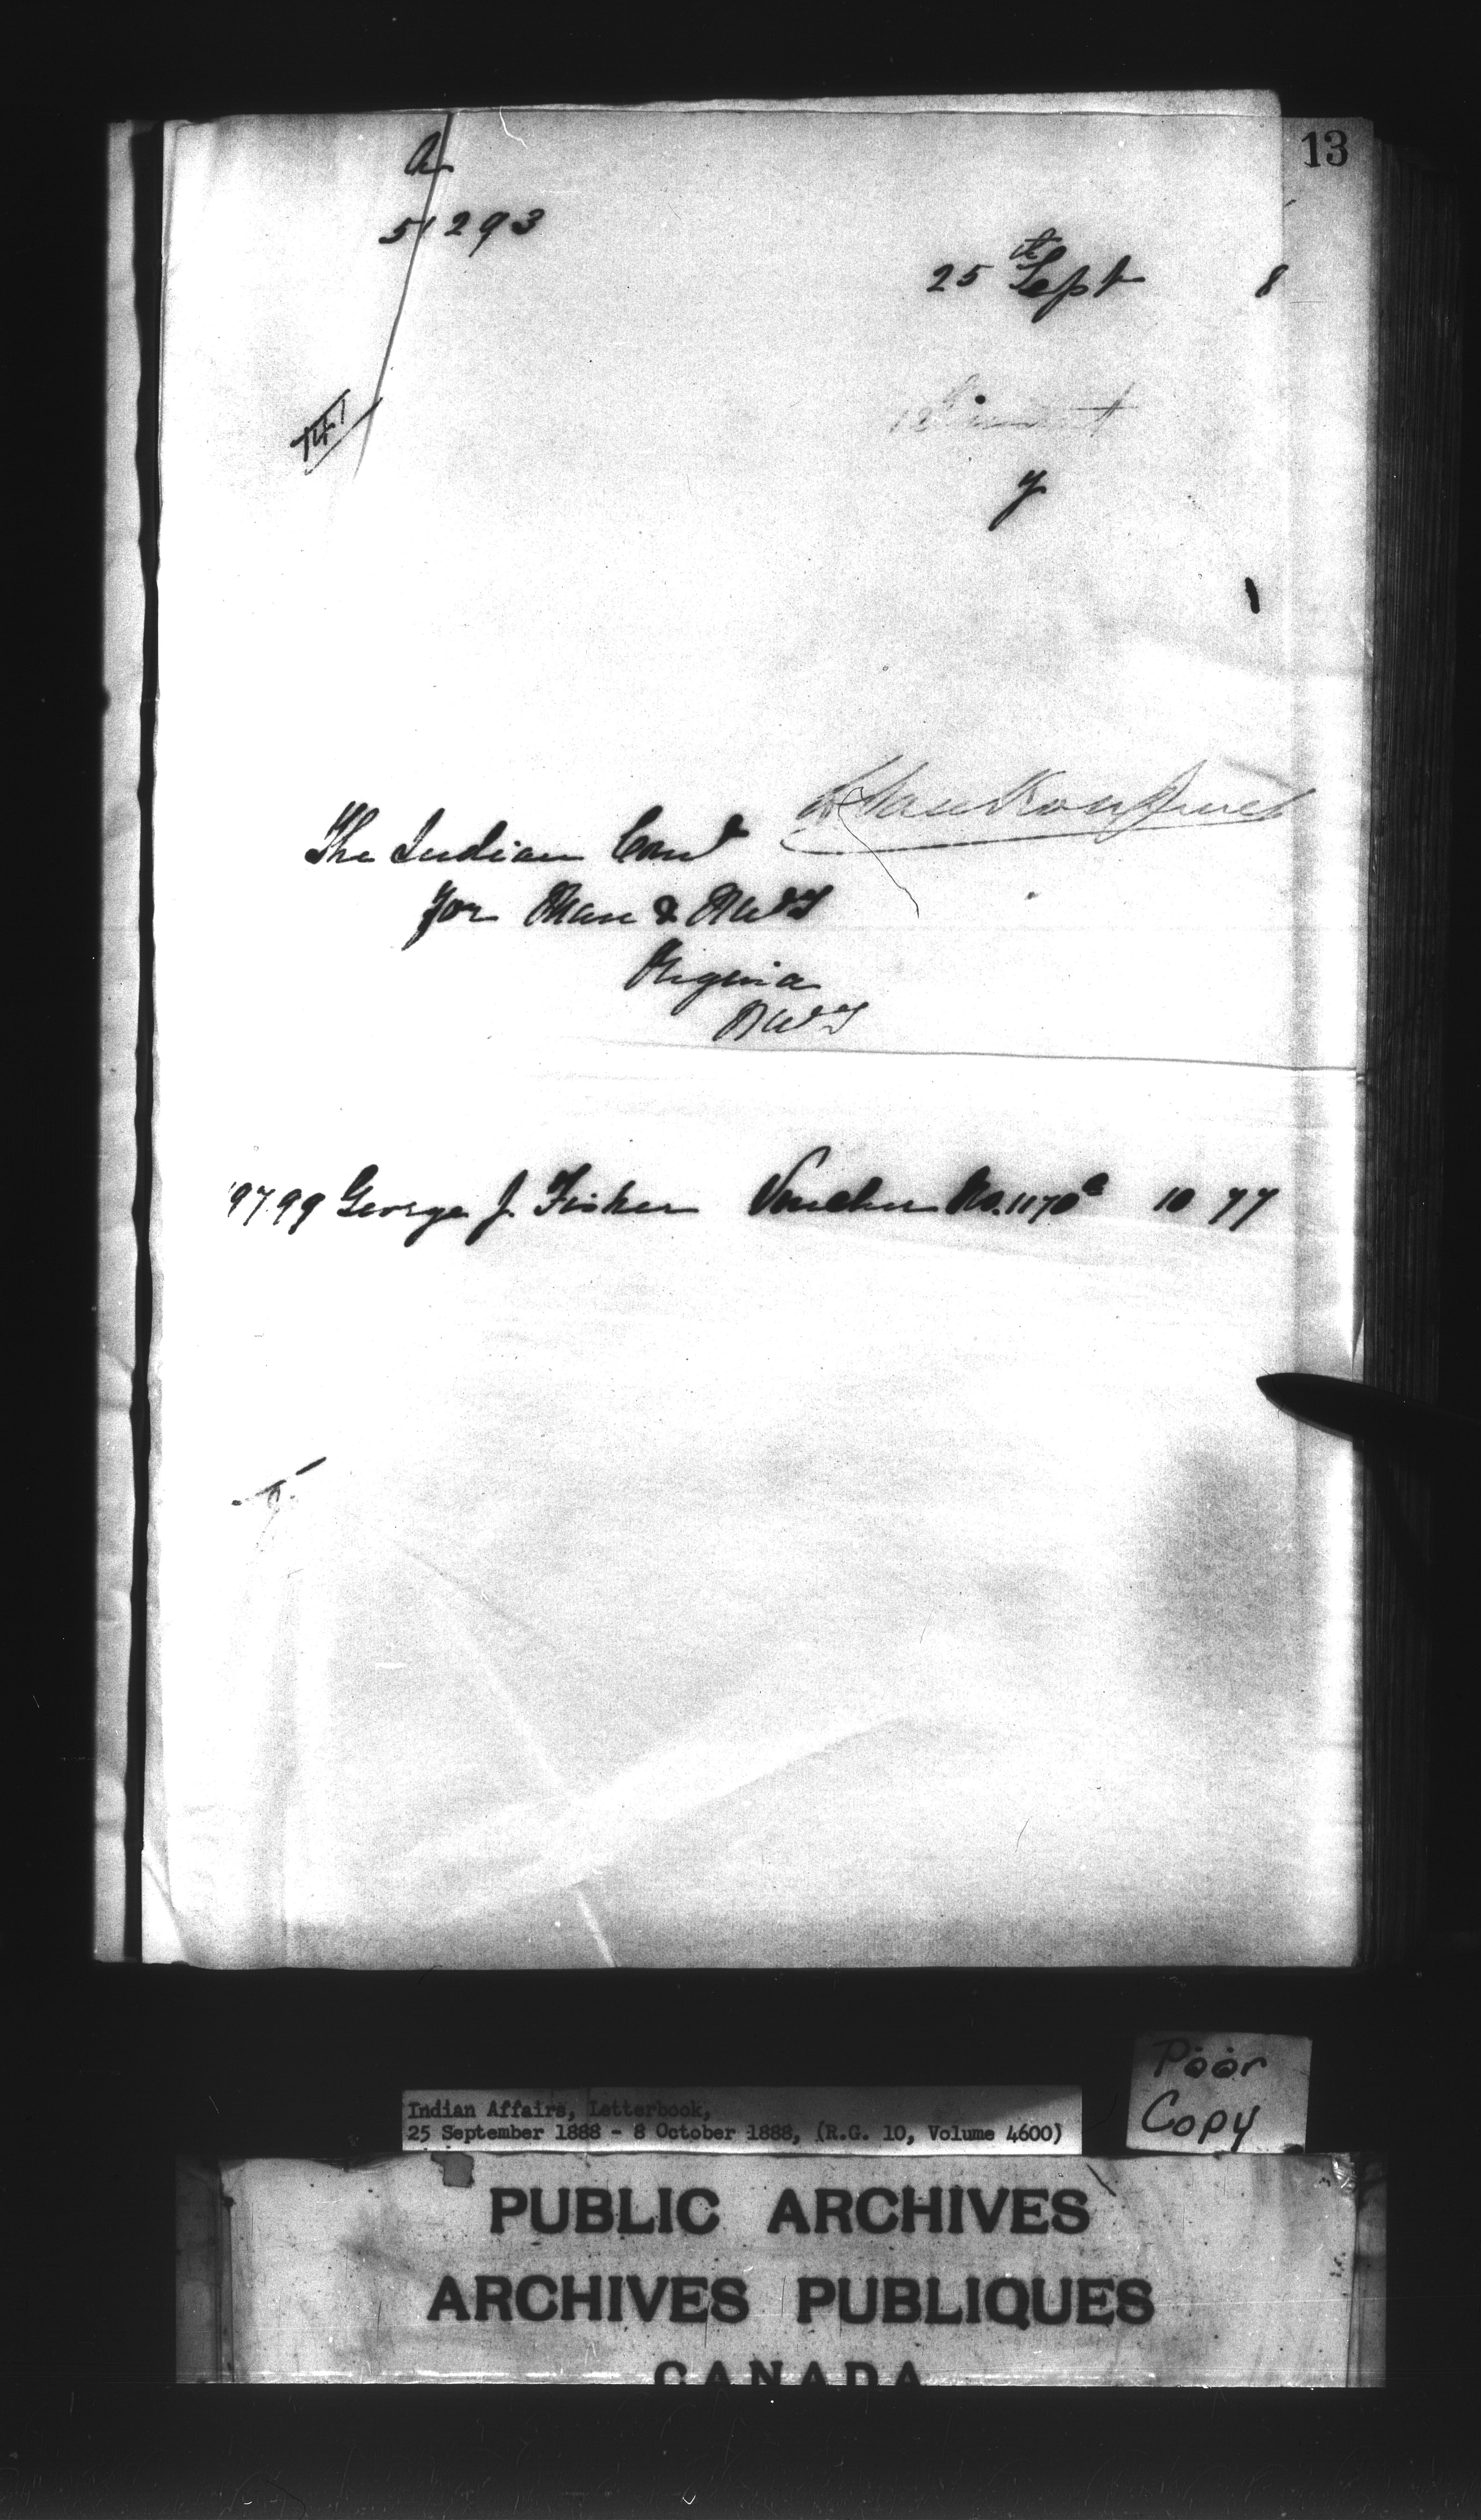 13
A
51293
25th Sept 8
141
y
L. VanKoughnet
The Indian Comr
for Man & NWT
Regina
NWT
9799 George J. Fisher Voucher No. 1170a 10 77
Poor
Copy
Indian Affairs, Letterbook,
25 September 1888 - 8 October 1888, (R.G. 10, Volume 4600)
PUBLIC ARCHIVES
ARCHIVES PUBLIQUES
CANADA